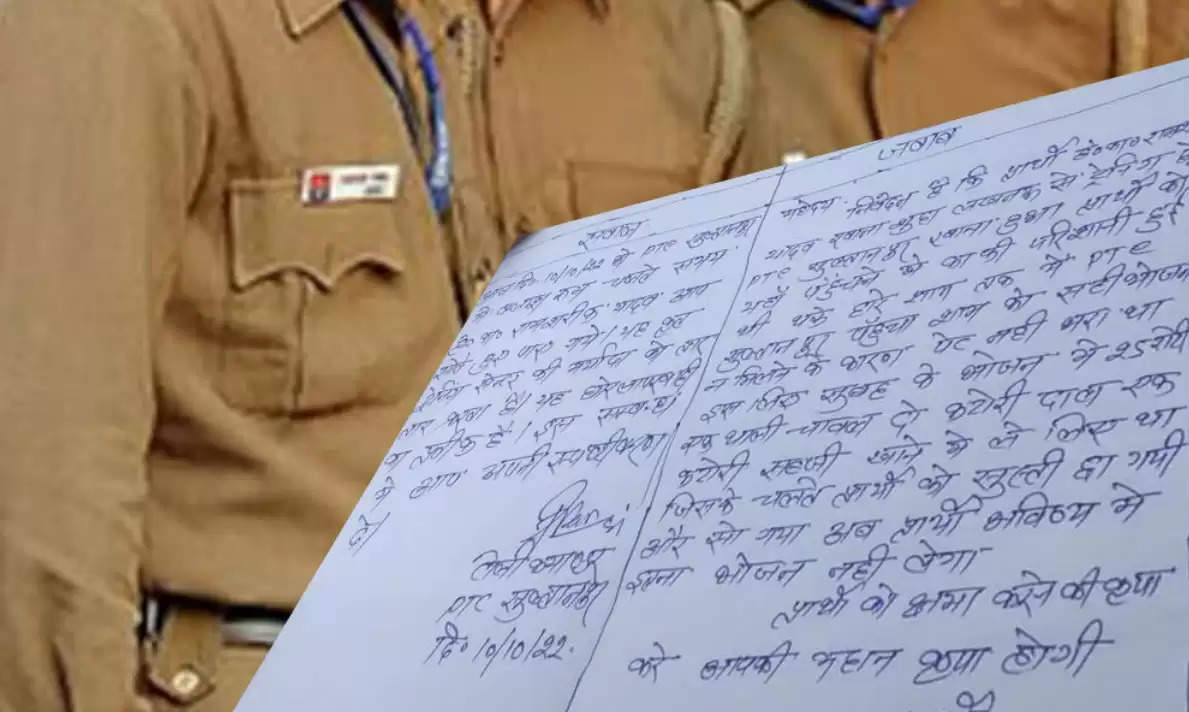 सवाल
दि० 10/10/22 को PTC सुल्तानपुर
चलते समय
रामशरीफ यादव आप
सोते हुए पाए गये। यह कृत
ट्रेनिंग सेन्टर की मर्यादा को तार
तार किया है। यह घोर लापरवाही
का प्रतीक है। इस सम्बन्ध
मे आप अपनी स्पष्टीकरण
दे।
PTC सुल्तानपुर
दि० 10/10/22.
जवाब
महोदय, निवेदन है कि प्रार्थी है०का० राम
यादव लखनऊ से ट्रेनिंग हेतु
PTC सुल्तानपुर रवाना हुआ प्रार्थी को
यहाँ पहुँचने में काफी परेशानी हुई
थी थके हारे शाम तक मे PTC
सुल्तानपुर पहुँचा शाम को सही भोजन
न मिलने के कारण पेट नही भरा था
इस लिए सुबह के भोजन मे 25 रोटी
एक थाली चावल दो कटोरी दाल एक
कटोरी सब्जी खाने मे ले लिया था
जिसके चलते प्रार्थी को सुस्ती छा गयी
और सो गया अब प्रार्थी भविष्य मे
इतना भोजन नही लेगा
प्रार्थी को क्षमा करने की कृपा
करे आपकी महान कृपा होगी